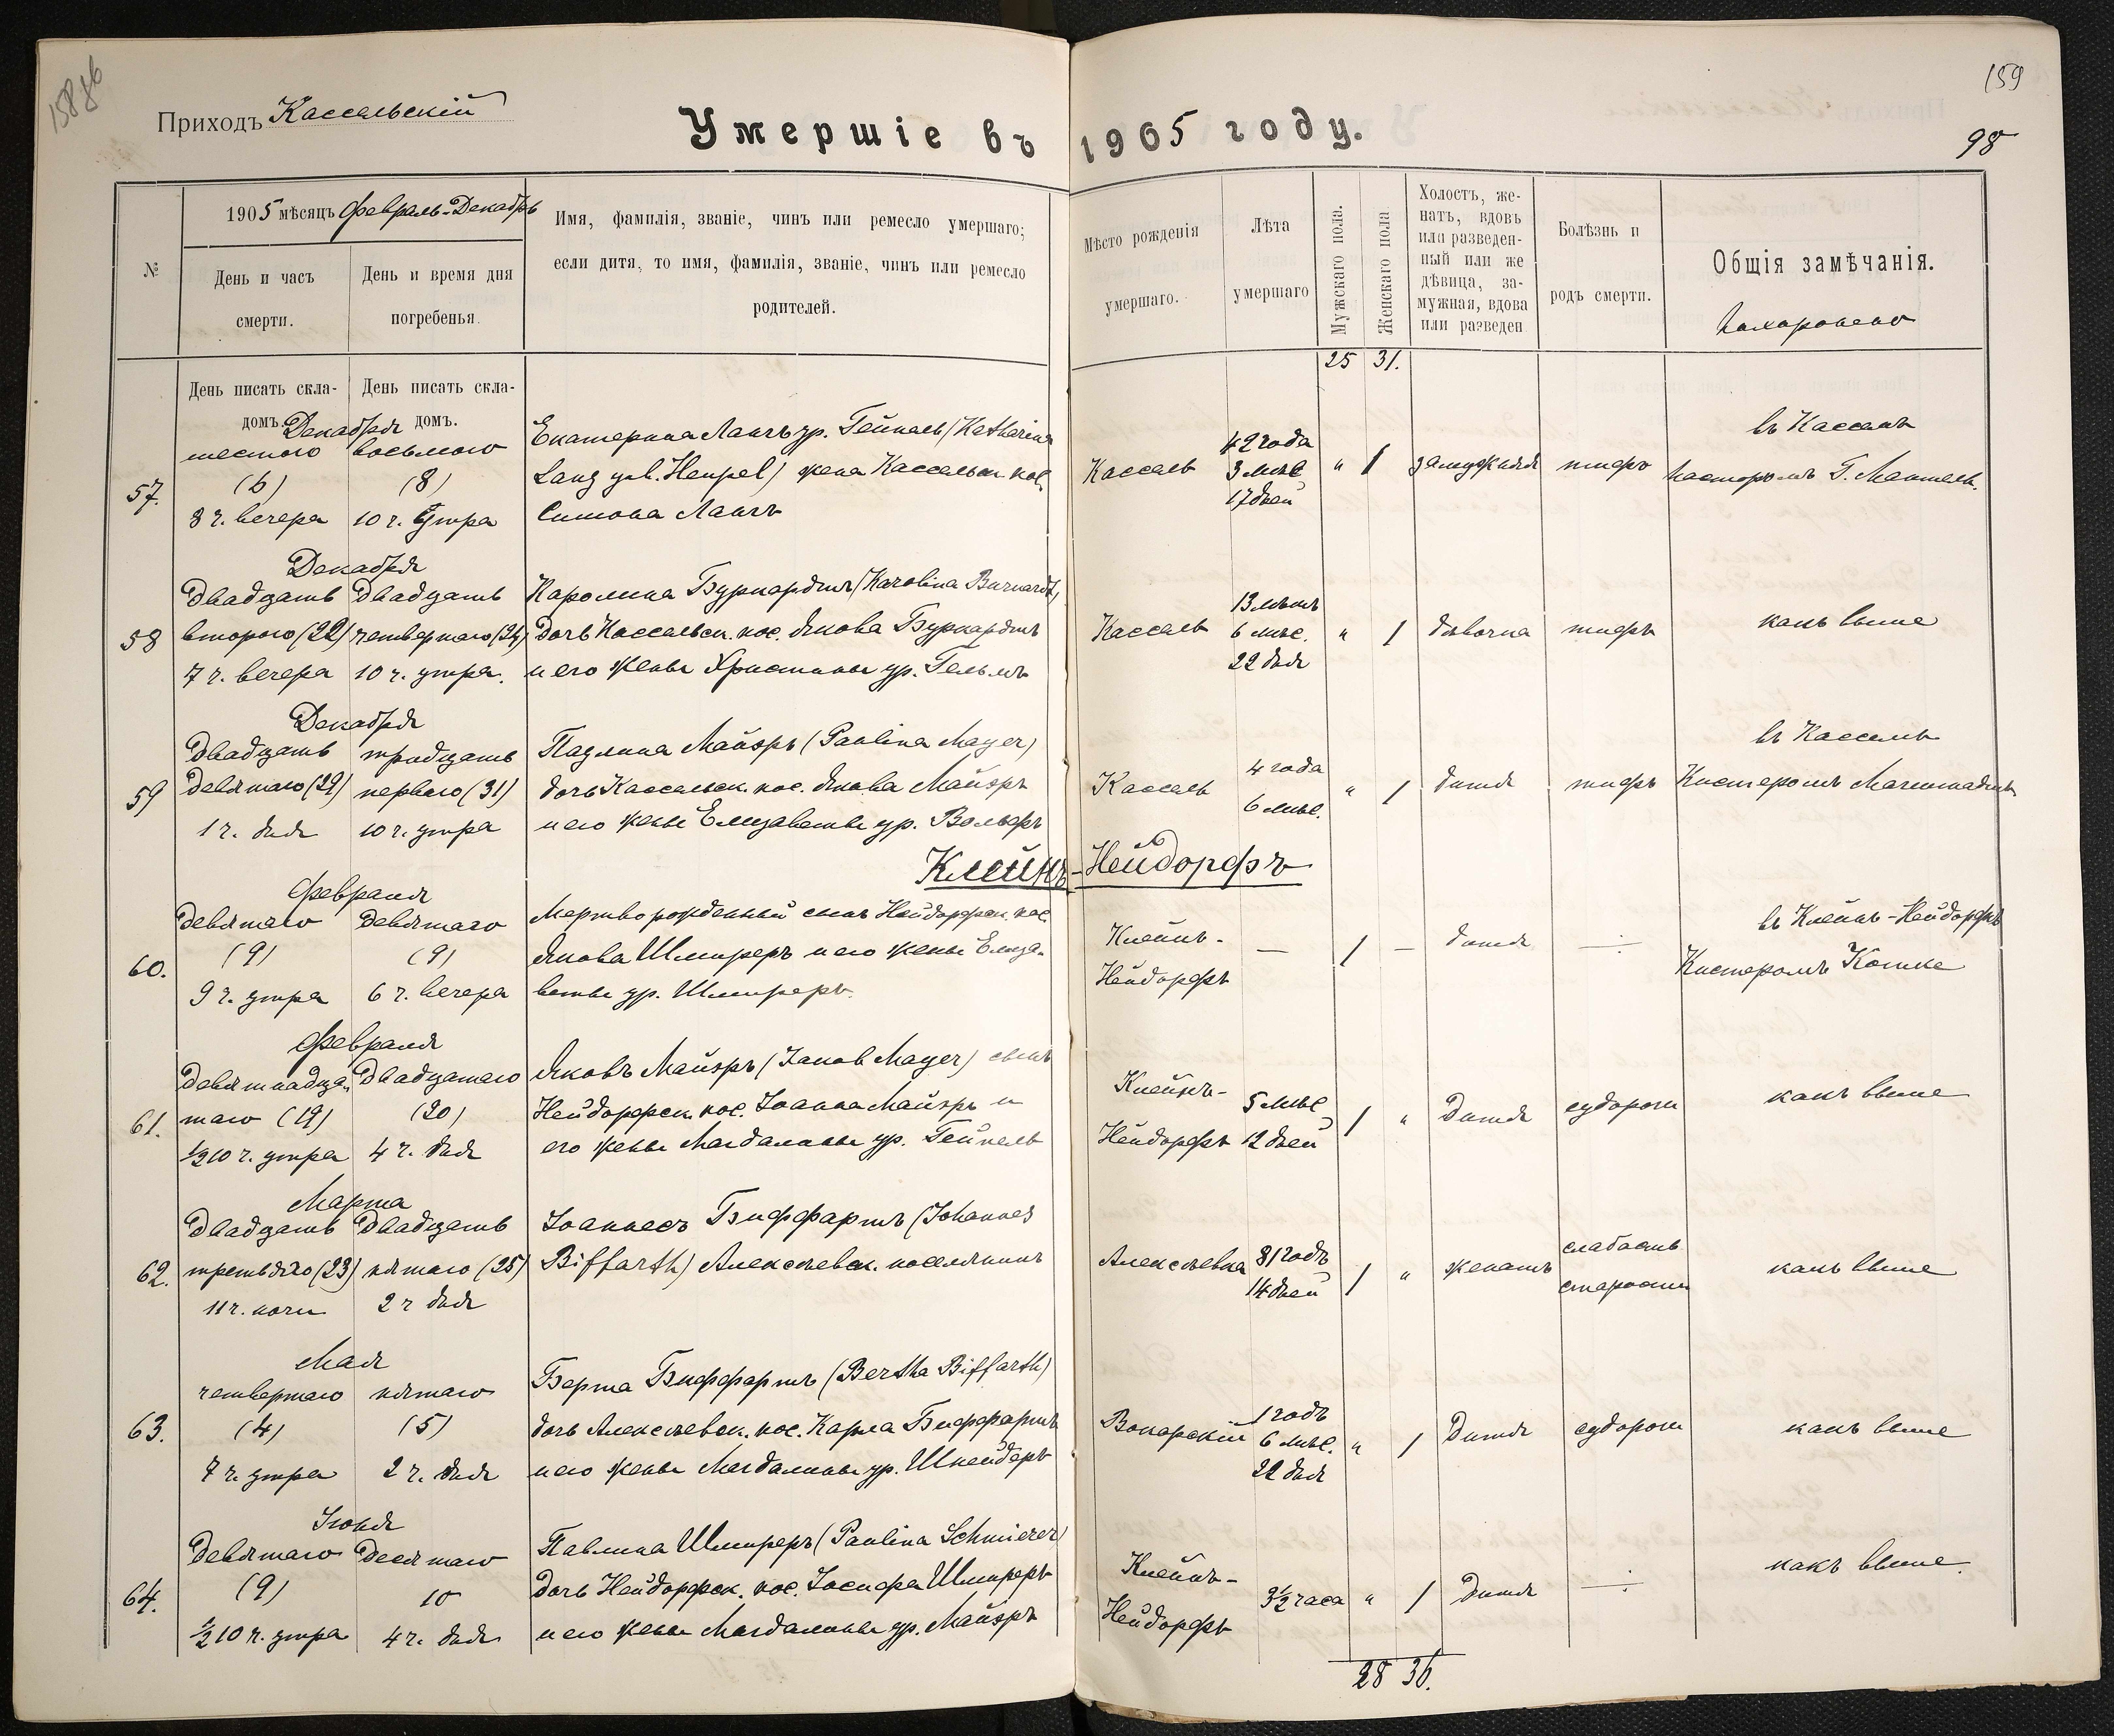 158 об
159
98
Приходъ Кассельскій
Умершіе въ 1905 году.
№
1905 мѣсяцъ Февраль-Декабрь
День и часъ смерти.
День и время дня погребенья.
Имя, фамилія, званіе, чинъ или ремесло умершаго;
если дитя, то имя, фамилія, званіе, чинъ или ремесло
родителей.
Мѣсто рожденія умершаго.
Лѣта умершаго
Мужскаго пола.
Женскаго пола
Холостъ, же-
натъ, вдовъ
или разведен-
ный или же
дѣвица, за-
мужная, вдова
или разведен
Болѣзнь и родъ смерти.
Общія замѣчанія.
Похоронено
25 31.
День писать скла-
домъ.
День писать скла-
домъ.
57.
Декабря
шестого (6)
8 ч. вечера
восьмого (8)
10 ч. утра
Екатерина Лангъ ур. Гейпель (Katharina
Lang geb. Heupel) жена Кассельск. пос.
Симона Лангъ
Кассель
42 года
3 мѣс.
17 дней
" 1
замужняя
тифъ
въ Кассель
пасторомъ Г.
58
Декабря
двадцать
второго (22)
7 ч. вечера
двадцать
четвертаго (24)
10 ч. утра.
Каролина Буркардтъ (Karolina Burkardt)
дочь Кассельск. пос. Якова Буркардтъ
и его жены Христины ур. Гельмъ
Кассель
13 лѣтъ
6 мѣс.
22 дня
" 1
дѣвочка
тифъ
какъ выше
59
Декабря
двадцать
девятаго (29)
1 ч. дня
тридцать
перваго (31)
10 ч. утра
Паулина Майэръ (Paulina Mayer)
дочь Кассельск. пос. Якова Майэръ
и его жены Елизаветы ур. Вольфъ
Кассель
4 года
6 мѣс.
" 1
дитя
тифъ
въ Кассель
Кистеромъ
Клейнъ-Нейдорфъ
60.
Февраля
девятаго
(9)
9 ч. утра
девятаго
(9)
6 ч. вечера
Мертворожденный сынъ Нейдорфск. пос.
Якова Шмиреръ и его жены Елиза-
веты ур. Шмиреръ.
Клейнъ-
Нейдорфъ
—
1 —
дитя
—
въ Клейнъ-Нейдорфъ
Кистеромъ Котке
61.
Февраля
девятнадца-
таго (19)
½10 ч. утра
двадцатаго
(20)
4 ч. дня
Яковъ Майэръ (Jakob Mayer) сынъ
Нейдорфск. пос. Іоанна Майэръ и
его жены Магдалины ур. Гейпель
Клейнъ-
Нейдорфъ
5 мѣс.
12 дней
1 "
Дитя
судороги
какъ выше
62.
Марта
двадцать
третьяго (23)
11 ч. ночи
двадцать
пятаго (25)
2 ч дня
Іоаннесъ Биффартъ (Johannes
Biffarth) Алексѣевск. поселянинъ
Алексѣевка
81 годъ
14 дней
1 "
женатъ
слабость
старости
какъ выше
63.
Мая
четвертаго
(4)
7 ч. утра
пятаго
(5)
2 ч. дня
Берта Биффартъ (Bertha Biffarth)
дочь Алексѣевск. пос. Карла Биффартъ
и его жены Магдалины ур. Шнейдеръ
Вокарскій
1 годъ
6 мѣс.
22 дня
" 1
Дитя
судороги
какъ выше
64.
Іюня
девятаго
(9)
½10 ч. утра
десятаго
10
4 ч. дня
Павлина Шмиреръ (Paulina Schmierer)
дочь Нейдорфск. пос. Іосифа Шмиреръ
и его жены Магдалины ур. Майэръ
Клейнъ-
Нейдорфъ
3½ часа
" 1
Дитя
—
какъ выше.
28 36.